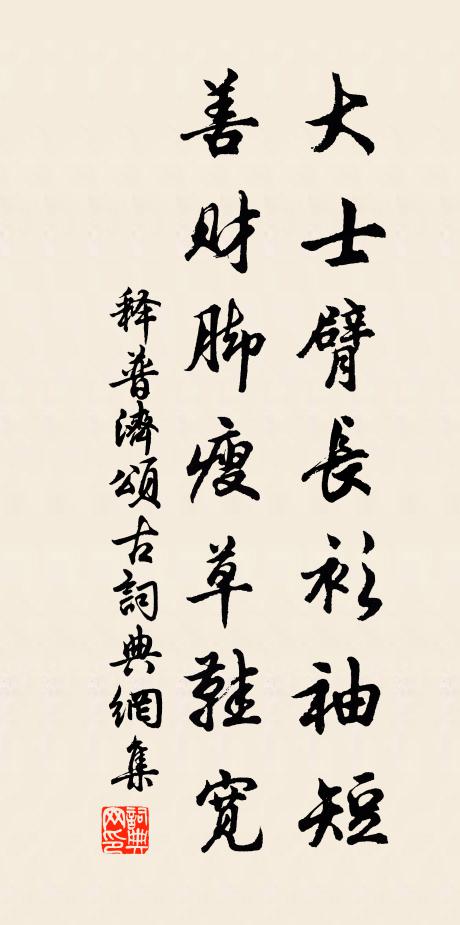 大士臂長衫袖短
善财脚瘦草鞋寬
释普濟頌古詞典網集
詞典網印